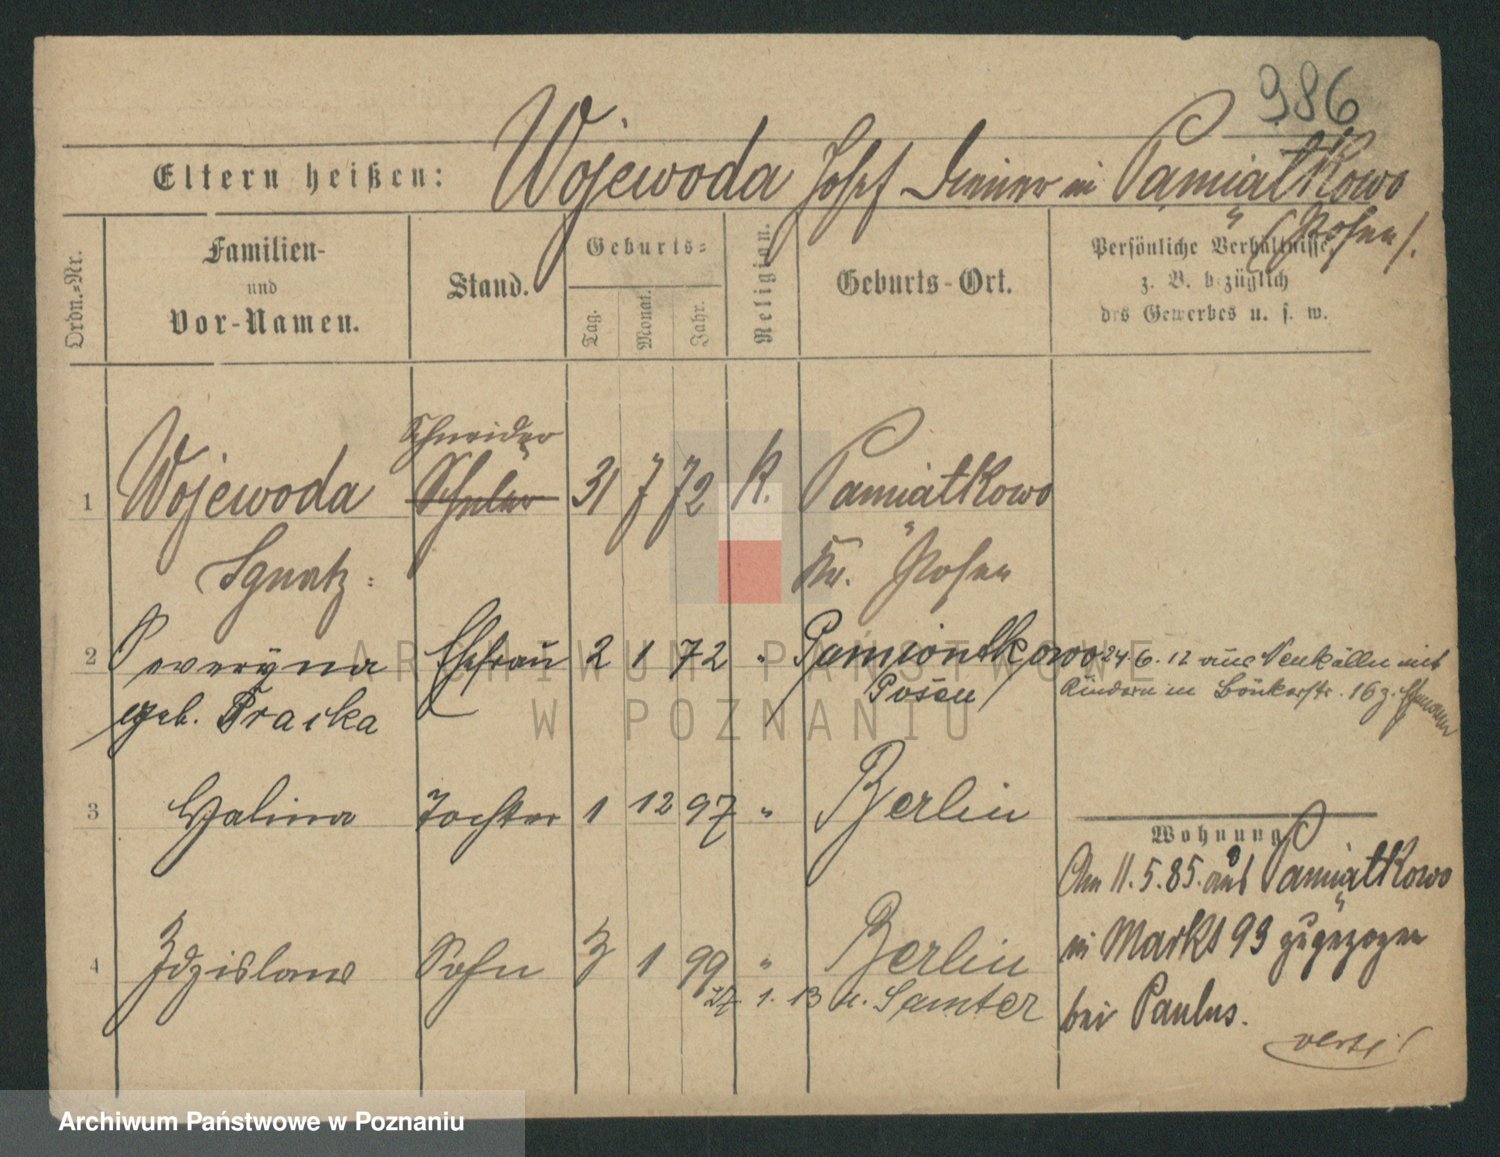 986
Eltern heißen: Wojewoda Josef Diener in Pamiatkowo
(Posen).
Ordn.-Nr.
Familien-
und
Vor-Namen.
Stand.
Geburts-
Tag.
Monat.
Jahr.
Religion.
Geburts-Ort.
Persönliche Verhältnisse,
z. B. bezüglich
des Gewerbes u. s. w.
Schneider
1 Wojewoda Schüler 31 7 72 K. Pamiatkowo
Ignatz. Kr. Posen
2 Severyna Ehefrau 2 1 72 " Pamiontkowo 24.6.12 aus Neukölln mit
geb. Tracka Posen Kindern in Bäckerstr. 16 z. Ehemann
3 Halina Tochter 1 12 97 " Berlin
Wohnung
Am 11.5.85. aus Pamiatkowo
in Markt 93 zugezogen
4 Zdzislaw Sohn 3 1 99 " Berlin
27. 1. 13 n. Samter
bei Paulus.
verte!
ARCHIWUM PAŃSTWOWE
W POZNANIU
Archiwum Państwowe w Poznaniu